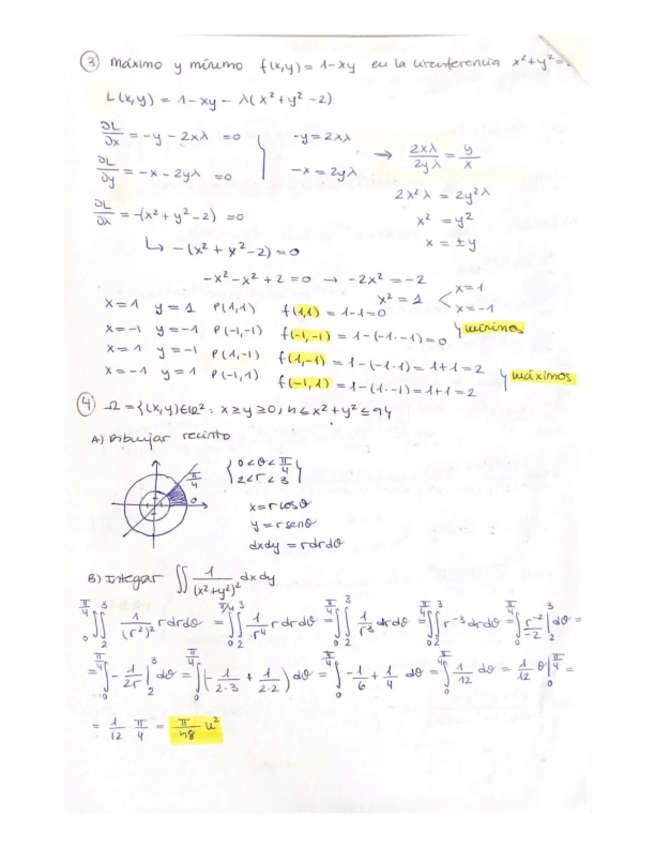 ③ Máximo y mínimo f(x,y) = 1-xy en la circunferencia x²+y²=
L(x,y) = 1-xy - λ(x²+y²-2)
∂L/∂x = -y - 2xλ = 0   -y = 2xλ
→ 2xλ/2yλ = y/x
∂L/∂y = -x - 2yλ = 0   -x = 2yλ
2x²λ = 2y²λ
∂L/∂λ = -(x²+y²-2) = 0   x² = y²
x = ±y
↳ -(x²+x²-2) = 0
-x²-x²+2 = 0 → -2x² = -2
x² = 1 < x=1
x=-1
x=1 y=1 P(1,1) f(1,1) = 1-1=0
x=-1 y=-1 P(-1,-1) f(-1,-1) = 1-(-1·-1) = 0 } mínimos
x=1 y=-1 P(1,-1) f(1,-1) = 1-(-1·1) = 1+1=2
x=-1 y=1 P(-1,1) f(-1,1) = 1-(1·-1) = 1+1=2 } máximos
④ Ω = {(x,y)∈ℝ² : x≥y≥0, 4≤x²+y²≤9}
A) Dibujar recinto
π/4
0
{ 0<θ<π/4
2<r<3 }
x = r cosθ
y = r senθ
dxdy = rdrdθ
B) Integrar ∬ 1/(x²+y²)² dxdy
∫₀^π/4 ∫₂³ 1/(r²)² rdrdθ = ∫₀^π/4 ∫₂³ 1/r⁴ rdrdθ = ∫₀^π/4 ∫₂³ 1/r³ drdθ = ∫₀^π/4 ∫₂³ r⁻³ drdθ = ∫₀^π/4 r⁻²/-2 |₂³ dθ =
= ∫₀^π/4 - 1/2r |₂³ dθ = ∫₀^π/4 (- 1/2·3 + 1/2·2) dθ = ∫₀^π/4 - 1/6 + 1/4 dθ = ∫₀^π/4 1/12 dθ = 1/12 θ |₀^π/4 =
= 1/12 π/4 = π/48 u²